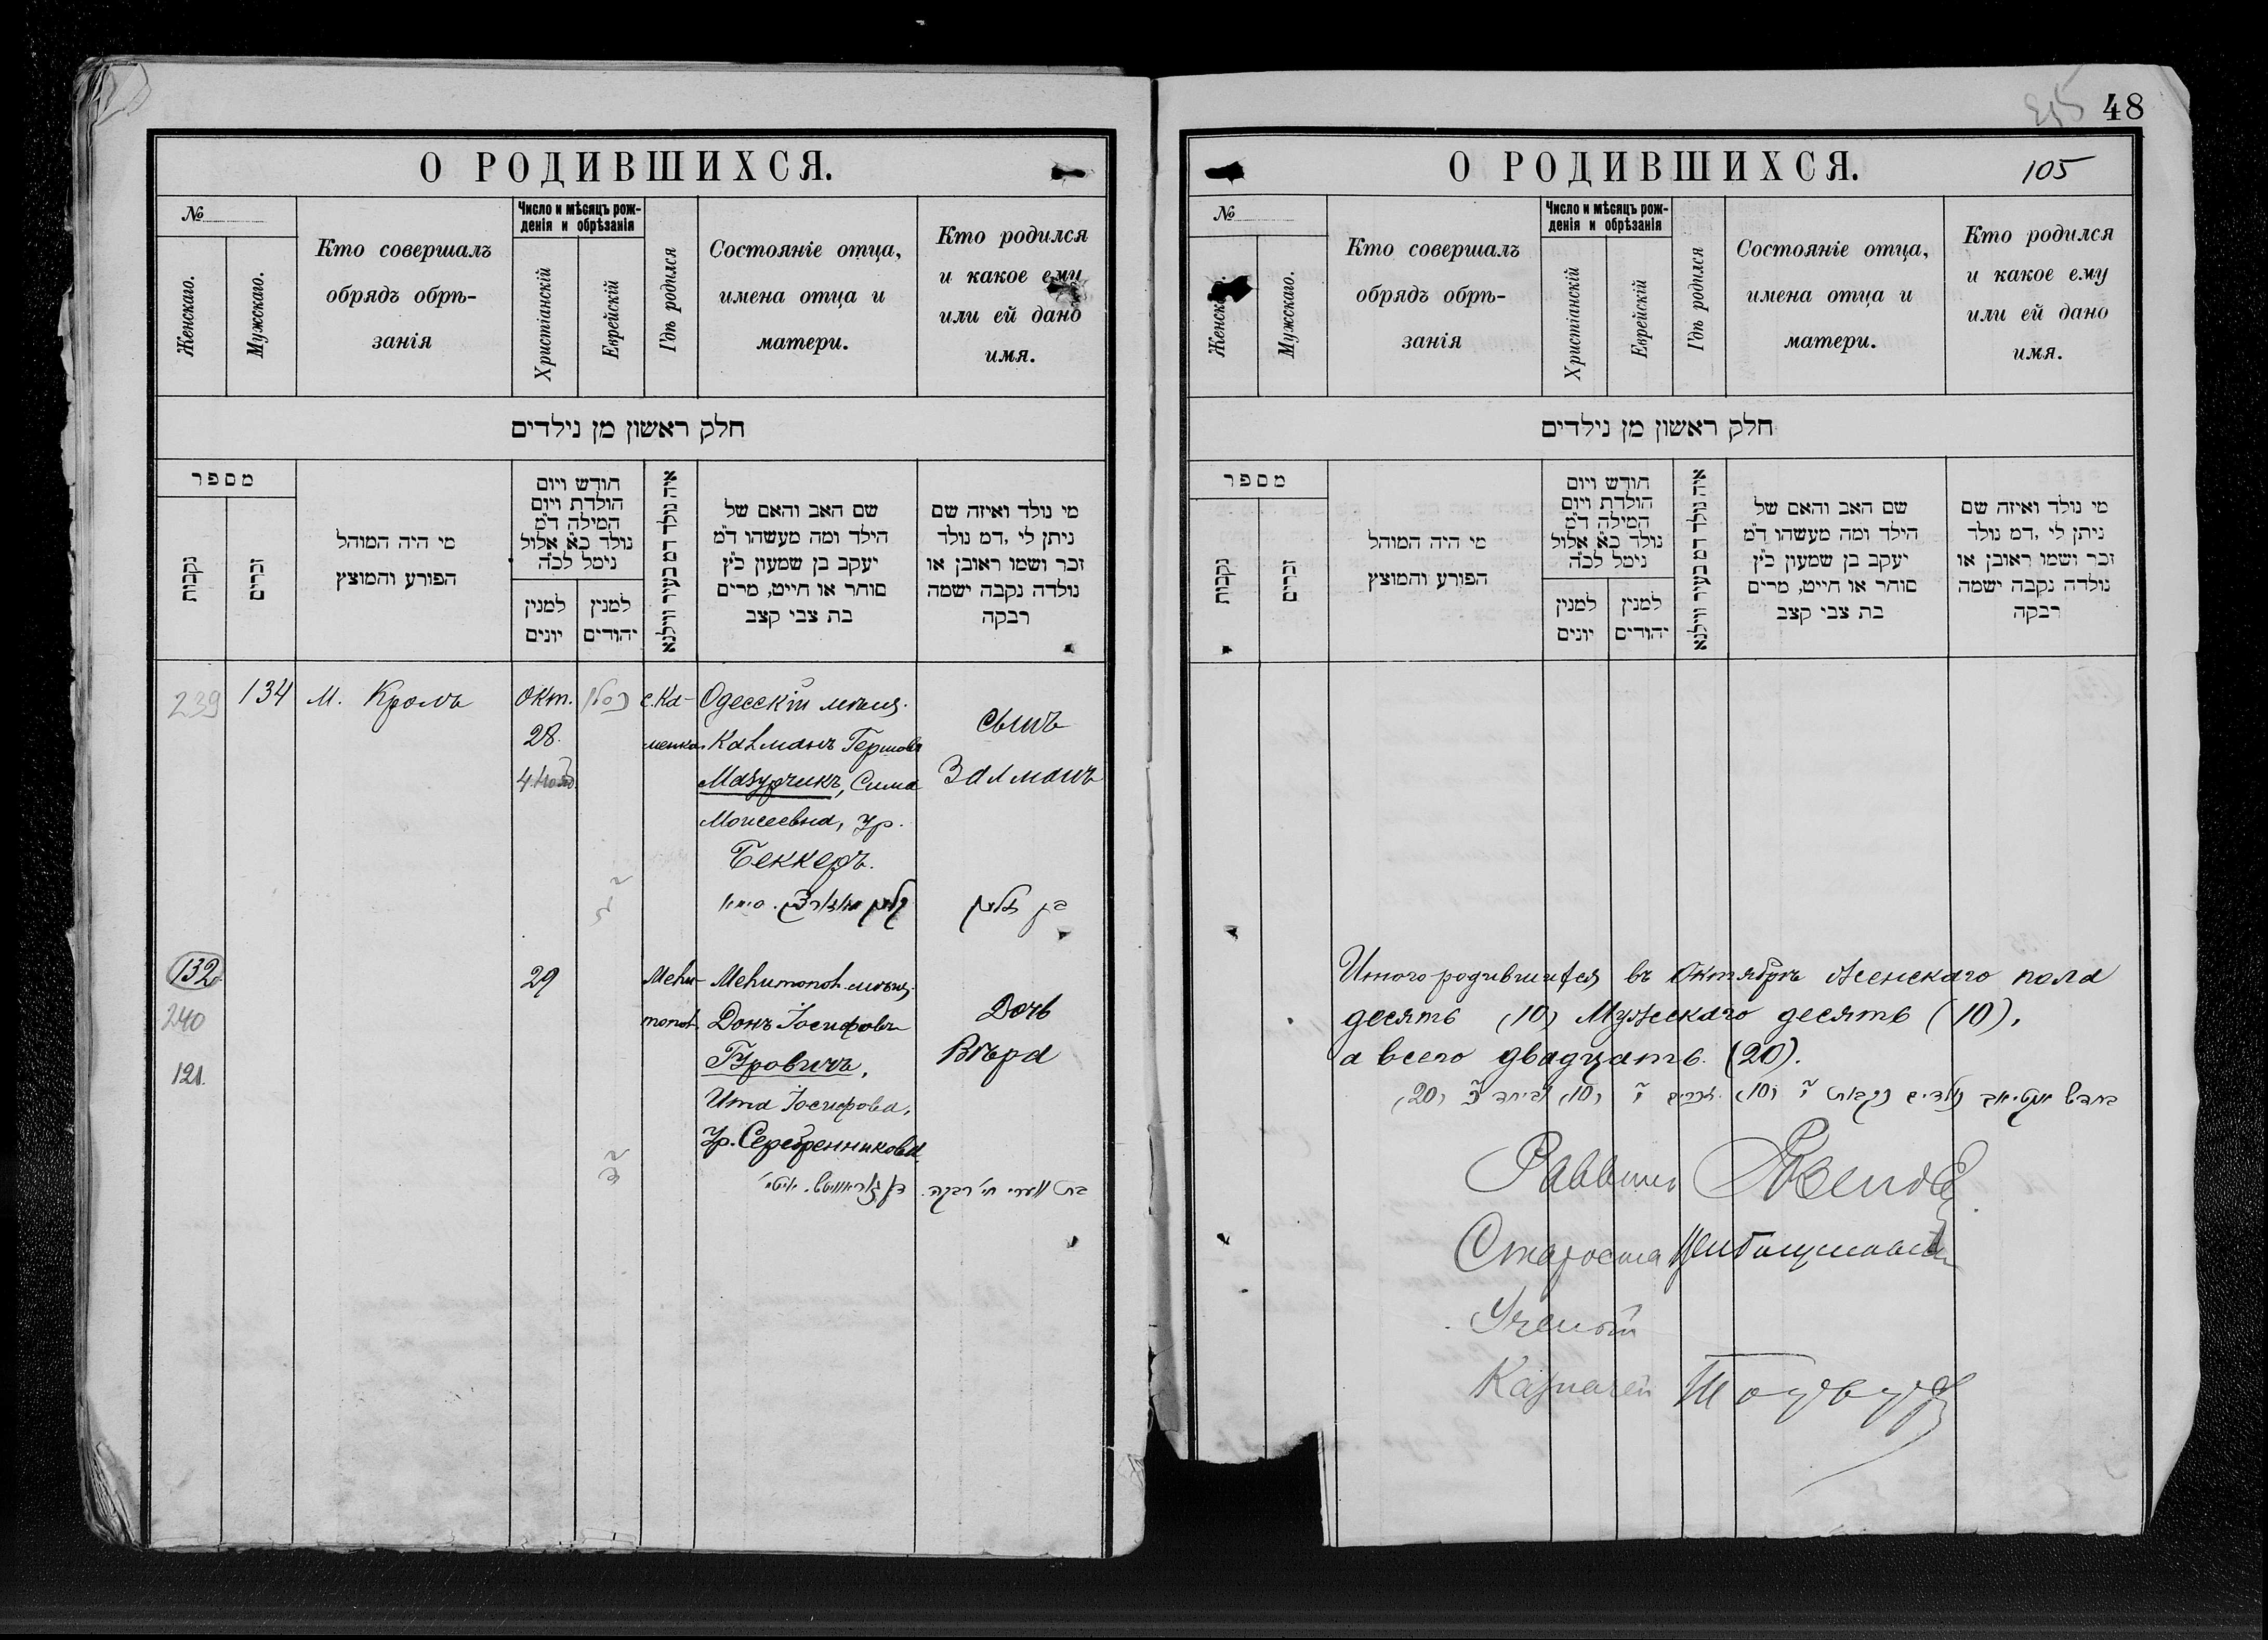 О РОДИВШИХСЯ.
№
Женскаго.
Мужскаго.
Кто совершалъ
обрядъ обрѣ-
занія
Число и мѣсяцъ рож-
денія и обрѣзанія
Христіанскій
Еврейскій
Гдѣ родился
Состояніе отца,
имена отца и
матери.
Кто родился
и какое ему
или ей дано
имя.
חלק ראשון מן נילדים
מספר
נקבות
זכרים
מי היה המוהל
הפורע והמוצץ
חודש ויום
הולדת ויום
המילה ד״מ
נולד כ״א אלול
נימל לכ״ה
למנין
יונים
למנין
יהודים
איה נולד דמ בעיר ווילנא
שם האב והאם של
הילד ומה מעשהו ד״מ
יעקב בן שמעון כ״ץ
סוחר או חייט, מרים
בת צבי קצב
מי נולד ואיזה שם
ניתן לי, דמ נולד
זכר ושמו ראובן או
נולדה נקבה ישמה
רבקה
239
134
М. Кроль
Окт.
28.
4 Нояб.
כסלו
с. Ка-
менка
Одесскій мѣщ.
Калманъ Гершовъ
Мазурчикъ, Сима
Моисеевна, ур.
Беккеръ.
Сынъ
Залманъ
בן זלמן
132
240
121.
29
Мели-
топол.
Мелитопол. мѣщ.
Донъ Іосифовъ
Гуровичъ,
Ита Іосифова,
Ур. Серебренникова.
Дочь
Вѣра
О РОДИВШИХСЯ.
48
105
№
Мужскаго.
Кто совершалъ
обрядъ обрѣ-
занія
Число и мѣсяцъ рож-
денія и обрѣзанія
Христіанскій
Еврейскій
Гдѣ родился
Состояніе отца,
имена отца и
матери.
Кто родился
и какое ему
или ей дано
имя.
חלק ראשון מן נילדים
מספר
נקבות
זכרים
מי היה המוהל
הפורע והמוצץ
חודש ויום
הולדת ויום
המילה ד״מ
נולד כ״א אלול
נימל לכ״ה
למנין
יונים
למנין
יהודים
איה נולד דמ בעיר ווילנא
שם האב והאם של
הילד ומה מעשהו ד״מ
יעקב בן שמעון כ״ץ
סוחר או חייט, מרים
בת צבי קצב
מי נולד ואיזה שם
ניתן לי, דמ נולד
זכר ושמו ראובן או
נולדה נקבה ישמה
רבקה
Итого родившихся въ Октябрѣ Женскаго пола
десять (10) Мужскаго десять (10),
а всего двадцать (20).
בחדש אקטיאב נולדים נקבות י׳ (10), זכרים י׳ (10), וביחד כ׳ (20)
Раввинъ
Староста
Ученый
Казначей